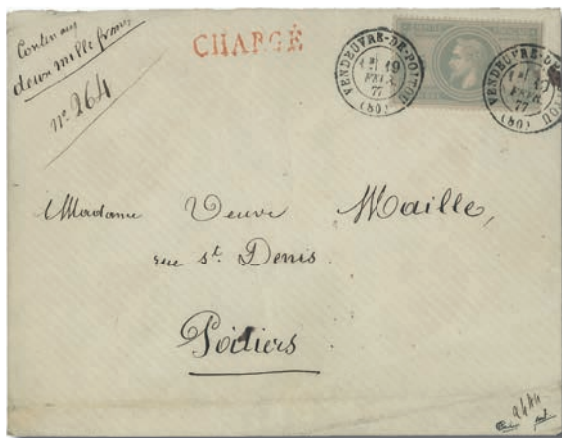 Contenant
deux mille francs
n° 264
CHARGÉ
VENDEUVRE-DE-POITOU
1E 19
FEVR.
77
(80)
VENDEUVRE-DE-POITOU
1E 19
FEVR.
77
(80)
Madame Veuve Maille,
rue St. Denis.
Poitiers